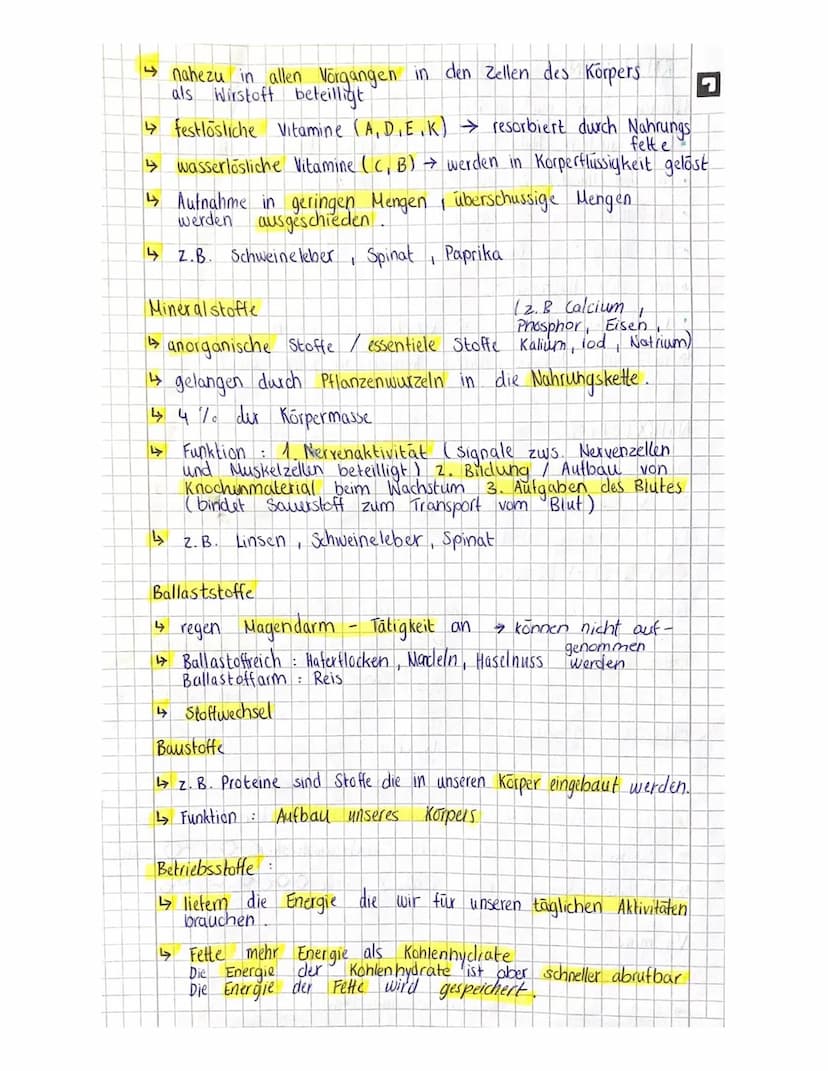 ↳ nahezu in allen Vorgangen in den Zellen des Körpers
als Wirstoff beteilligt
↳ festlösliche Vitamine (A, D, E, K) → resorbiert durch Nahrungs
fette
↳ wasserlösliche Vitamine (C, B) → werden in Körperflüssigkeit gelöst
↳ Aufnahme in geringen Mengen, überschussige Mengen
werden ausgeschieden.
↳ z.B. Schweineleber, Spinat, Paprika
Mineralstoffe
(z.B Calcium,
Phosphor, Eisen,
↳ anorganische Stoffe / essentiele Stoffe Kalium, Iod, Natrium)
↳ gelangen durch Pflanzenwurzeln in die Nahrungskette.
↳ 4 % der Körpermasse
↳ Funktion : 1. Nervenaktivität (Signale zws. Nervenzellen
und Muskelzellen beteiligt) 2. Bildung / Aufbau von
Knochenmaterial beim Wachstum 3. Aufgaben des Blutes
(bindet Sauerstoff zum Transport vom Blut)
↳ z.B. Linsen, Schweineleber, Spinat
Ballaststoffe
↳ regen Magendarm - Tätigkeit an → können nicht auf-
genommen
↳ Ballastoffreich : Haferflocken, Nudeln, Haselnuss werden
Ballastoffarm : Reis
↳ Stoffwechsel
Baustoffe
↳ z.B. Proteine sind Stoffe die in unseren Körper eingebaut werden.
↳ Funktion : Aufbau unseres Körpers
Betriebsstoffe :
↳ liefern die Energie die wir für unseren täglichen Aktivitäten
brauchen.
↳ Fette mehr Energie als Kohlenhydrate
Die Energie der Kohlenhydrate ist aber schneller abrufbar
Die Energie der Fette wird gespeichert.